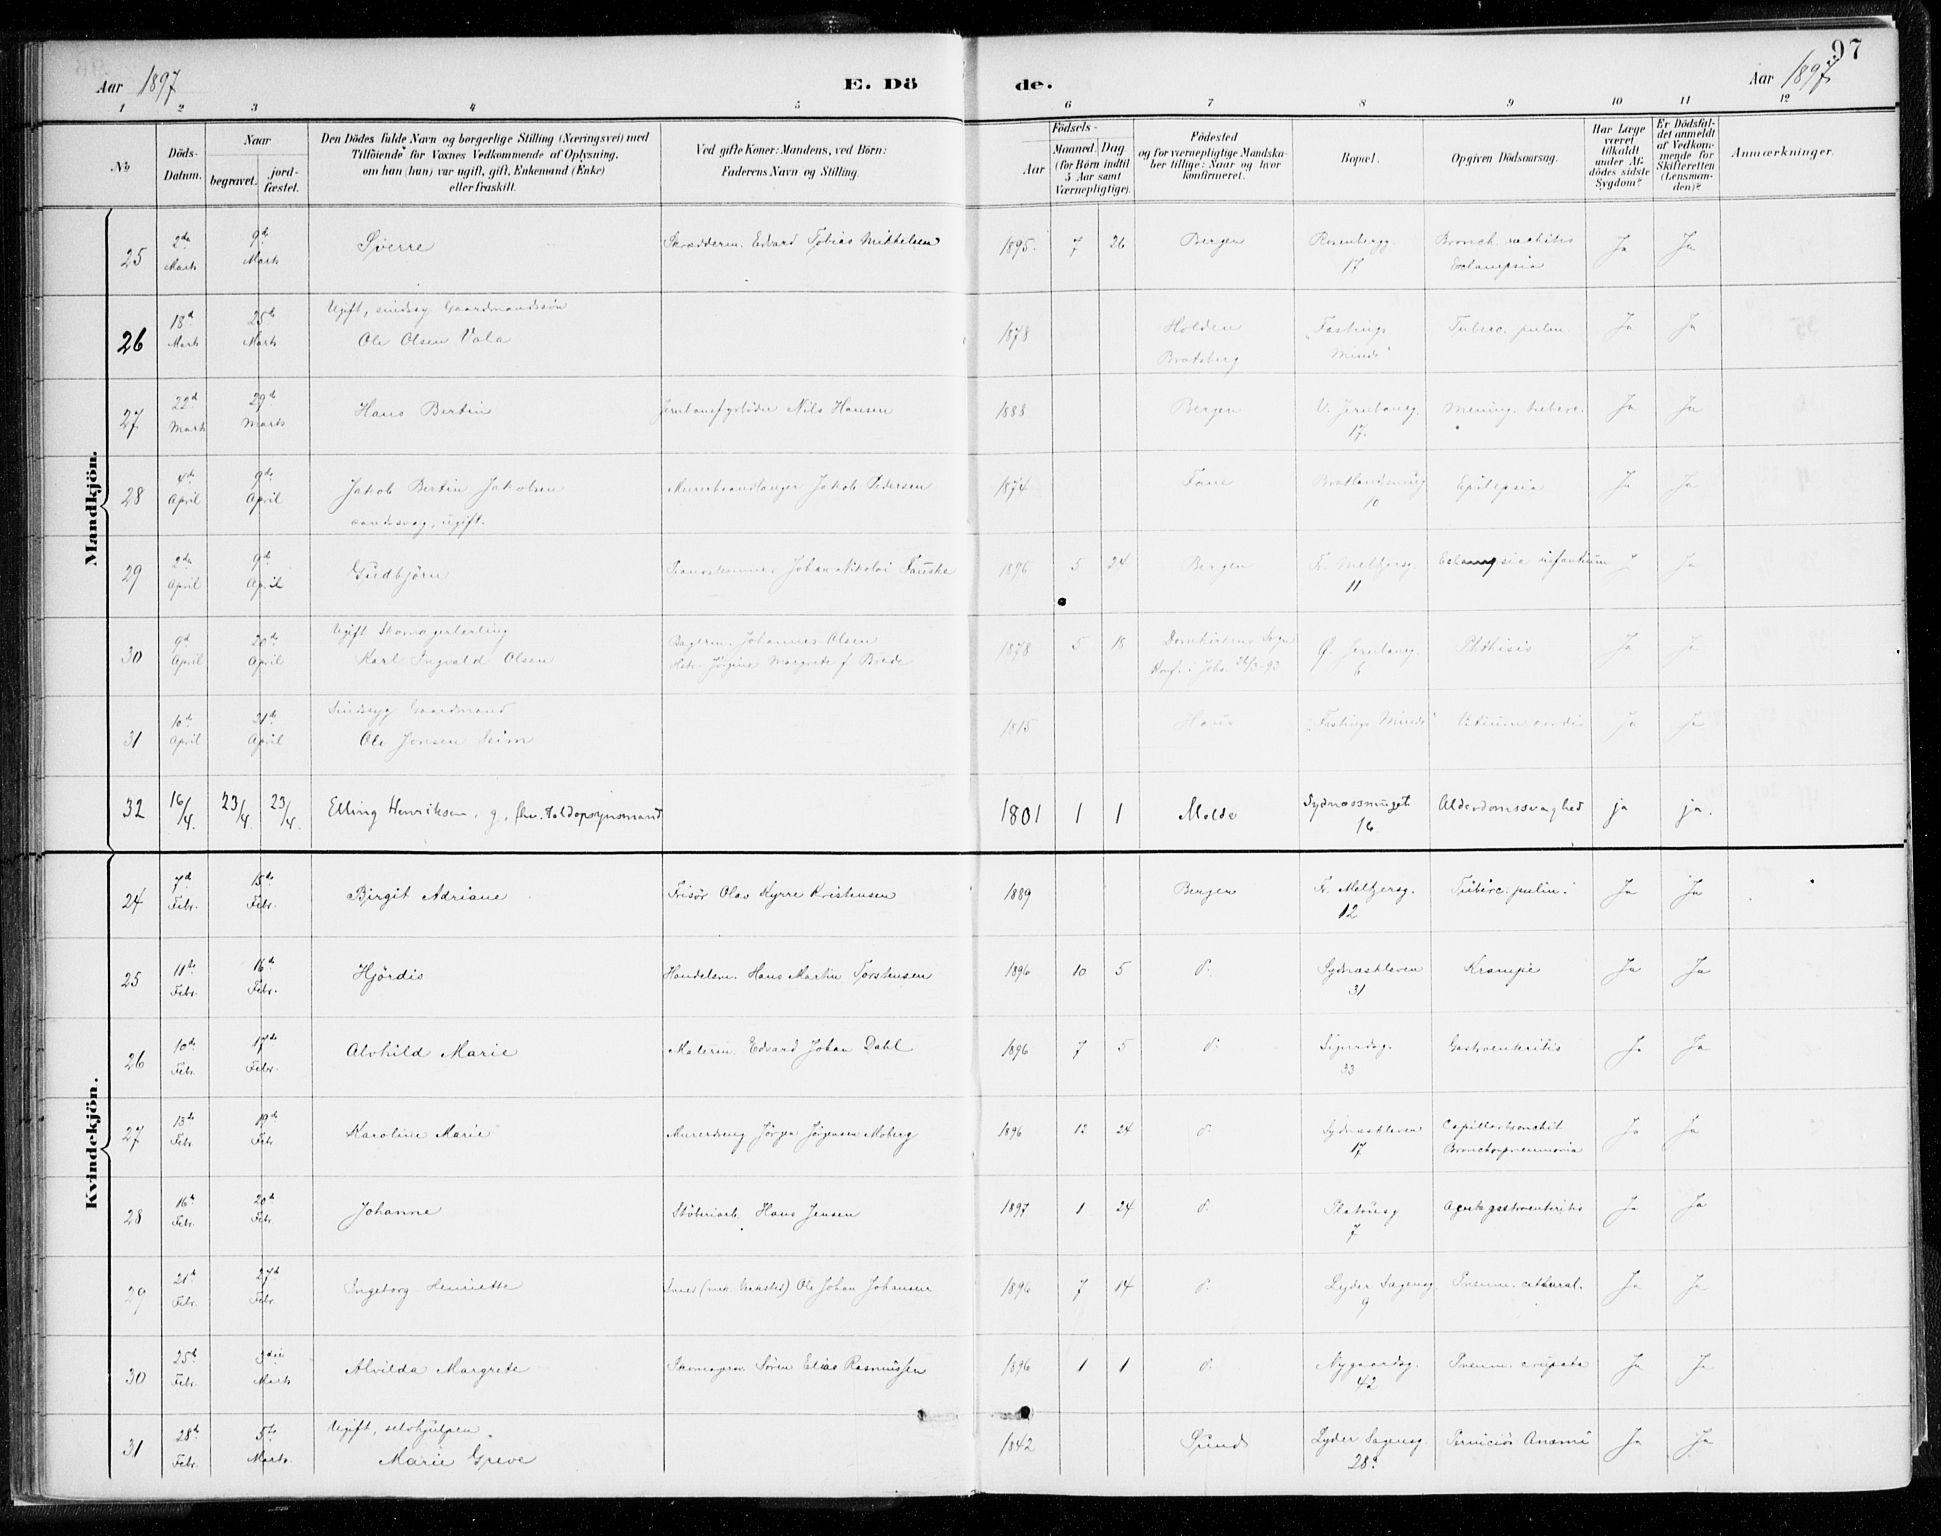 97
Aar 1897
E. Dö
de.
Aar 1897
1 2 3 4 5 6 7 8 9 10 11 12
No
Döds-Datum.
Naar
begravet.
jordfæstet.
Den Dödes fulde Navn og borgerlige Stilling (Næringsvei) med
Tilföiende for Voxnes Vedkommende af Oplysning,
om han (hun) var ugift, gift, Enkemand (Enke)
eller fraskilt.
Ved gifte Koner: Mandens, ved Börn:
Faderens Navn og Stilling.
Födsels-
Aar
Maaned. Dag
(for Börn indtil
5 Aar samt
Værnepligtige).
Födested
og for værnepligtige Mandskaber tillige: Naar og hvor
konfirmeret.
Bopæl.
Opgiven Dödsaarsag.
Har Læge
været
tilkaldt
under Afdödes sidste
Sygdom?
Er Dödsfaldet anmeldt
af Vedkommende for
Skifteretten
(Lensmanden)?
Anmærkninger.
Mandkjön.
25 2de Marts 9de Marts Sverre Skræderm. Edvard Tobias Mikkelsen 1895. 7 26 Bergen Rosenbergg. 17 Bronch. rachitis Eclampsia Ja Ja
26 18d Marts 25de Marts Ugift, sindssyg Gaardmandssøn
Ole Olsen Vala 1878 Holden Bratsberg "Fastings Minde" Tuberc. pulm. Ja Ja
27 22d Marts 29d Marts Hans Bertin Jernbanefyrbøder Nils Hansen 1888 Bergen V. Jernbaneg. 17. Mening. tuberc. Ja Ja
28 4de April 9de April Jakob Bertin Jakobsen
aandssvag, ugift. Murerhaandlanger Jakob Pedersen 1874 Fane Bratlandsmug 10 Epilepsia Ja Ja
29 2de April 9de April Gudbjörn Johan Nikolai Fauske 1896 5 24 Bergen Fr. Meltzersg. 11 Eclampsie infantium Ja
30 9d April 20de April Ugift Skomagerlærling
Karl Ingvald Olsen Bagerm. Johannes Olsen
Jørgine Margrete f Brede 1878 5 18 Domkirkens Sogn
Konf. i Joha. 26/3-93 Ø. Jernbaneg. 6 Phthisis Ja Ja
31 16de April 21de April Sindssyg Gaardmand
Ole Jonsen Seim 1815 Haus "Fastings Minde" Vitium cordis Ja Ja
32 16/4. 23/4. 23/4. Elling Henriksen, g., fhv. Toldopsynsmand 1801 1 1 Molde Sydnæssmuget 16 Alderdomssvaghed ja ja.
Kvindekjön.
24 7d Febr. 15de Febr. Birgit Adriane Frisør Olav Kyrre Kristensen 1889 Bergen Fr. Meltzersg. 12 Tuberc. pulm. Ja Ja
25 11te Febr. 16de Febr. Hjördis Handelsm. Hans Martin Torstensen 1896 10 5 d. Sydnæskleven 31 Krampe Ja Ja
26 10de Febr. 17de Febr. Alvhild Marie Malerm. Edvard Johan Dahl 1896 7 5 d. Sigurdsg. 33 Gastroenteritis Ja Ja
27 13de Febr. 19de Febr. Karoline Marie Murerdreng Jørgen Jørgensen Moberg 1896 12 24 d. Sydnæskleven 17 Capillærbronchit
Bronchopneumonia Ja Ja
28 16d Febr. 20d Febr. Johanne Støberiarb. Hans Jensen 1897 1 24 d. Platousg 7 Acut gastroenteritis Ja Ja
29 21d Febr. 27d Febr. Ingeborg Henriette Smed (mek. Verksted) Ole Johan Johansen 1896 7 14 d. Lyder Sagensg. 9 Pneum. catharal. Ja Ja
30 25d Febr. 3die Marts Alvilda Margrete Skomagerm. Søren Elias Rasmussen 1896 1 1 d. Nygaardsg. 42 Pneum. crupøsa Ja Ja
31 28d Febr. 5te Marts Ugift, selvhjulpen
Marie Greve 1842 Sund Lyder Sagensg 28. Perniciös Anæmi Ja Ja